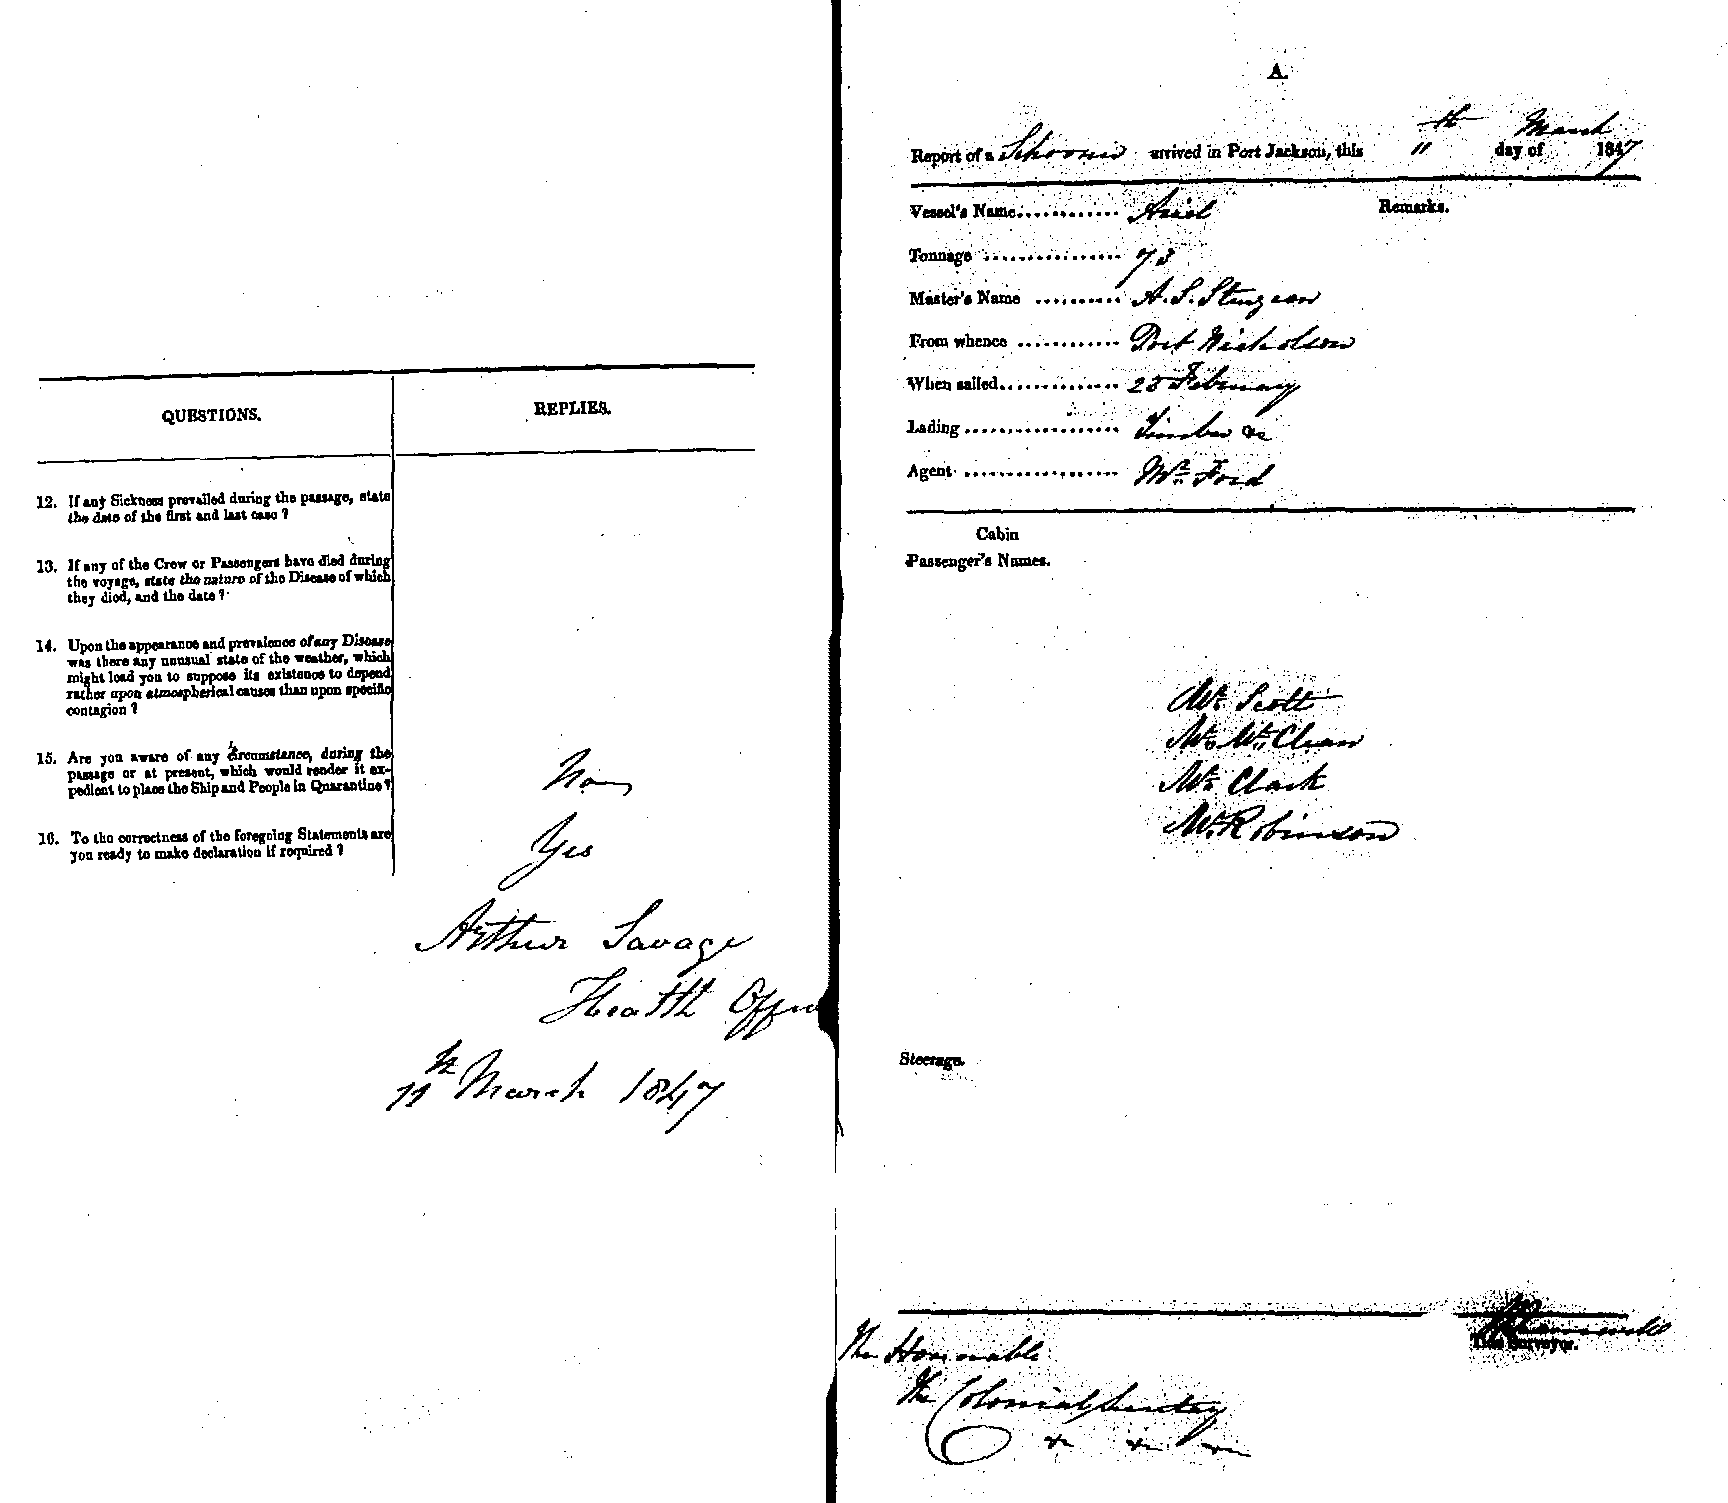 QUESTIONS.
REPLIES.
12. If any Sickness prevailed during the passage, state
the date of the first and last case ?
13. If any of the Crew or Passengers have died during
the voyage, state the nature of the Disease of which
they died, and the date ?
14. Upon the appearance and prevalence of any Disease
was there any unusual state of the weather, which
might lead you to suppose its existence to depend
rather upon atmospherical causes than upon specific
contagion ?
15. Are you aware of any circumstance, during the
passage or at present, which would render it ex-
pedient to place the Ship and People in Quarantine ?
No
16. To the correctness of the foregoing Statements are
you ready to make declaration if required ?
Yes
Arthur Savage
Health Officer
11th March 1847
A.
Report of a Schooner arrived in Port Jackson, this 11th day of March 1847
Vessel's Name............ Ariel
Remarks.
Tonnage ................ 73
Master's Name .......... A. S. Sturgeon
From whence ............ Port Nicholson
When sailed.............. 25 February
Lading .................. Timber &c
Agent .................. Mr. Ford
Cabin
Passenger's Names.
Mr. Scott
Mr. McClean
Mr. Clark
Mr. Robinson
Steerage.
Tide Surveyor.
The Honorable
The Colonial Secretary
&c &c &c